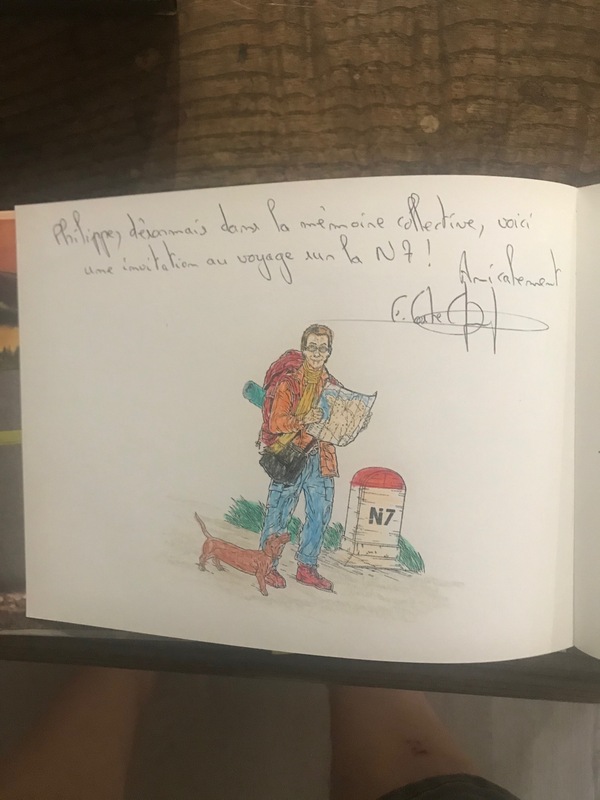 Philippe, désormais dans la mémoire collective, voici
une invitation au voyage sur la N7 !
Amicalement
N7